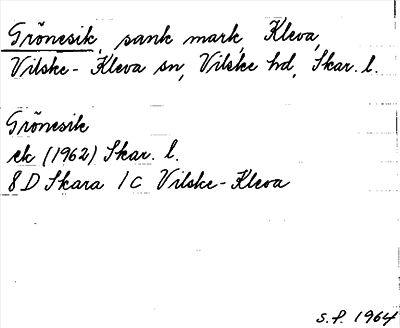 Grönesik, sank mark, Kleva,
Vilske-Kleva sn, Vilske hd, Skar. l.
Grönesik
ek (1962) Skar. l.
8 D Skara 1 C Vilske-Kleva
S.F. 1964